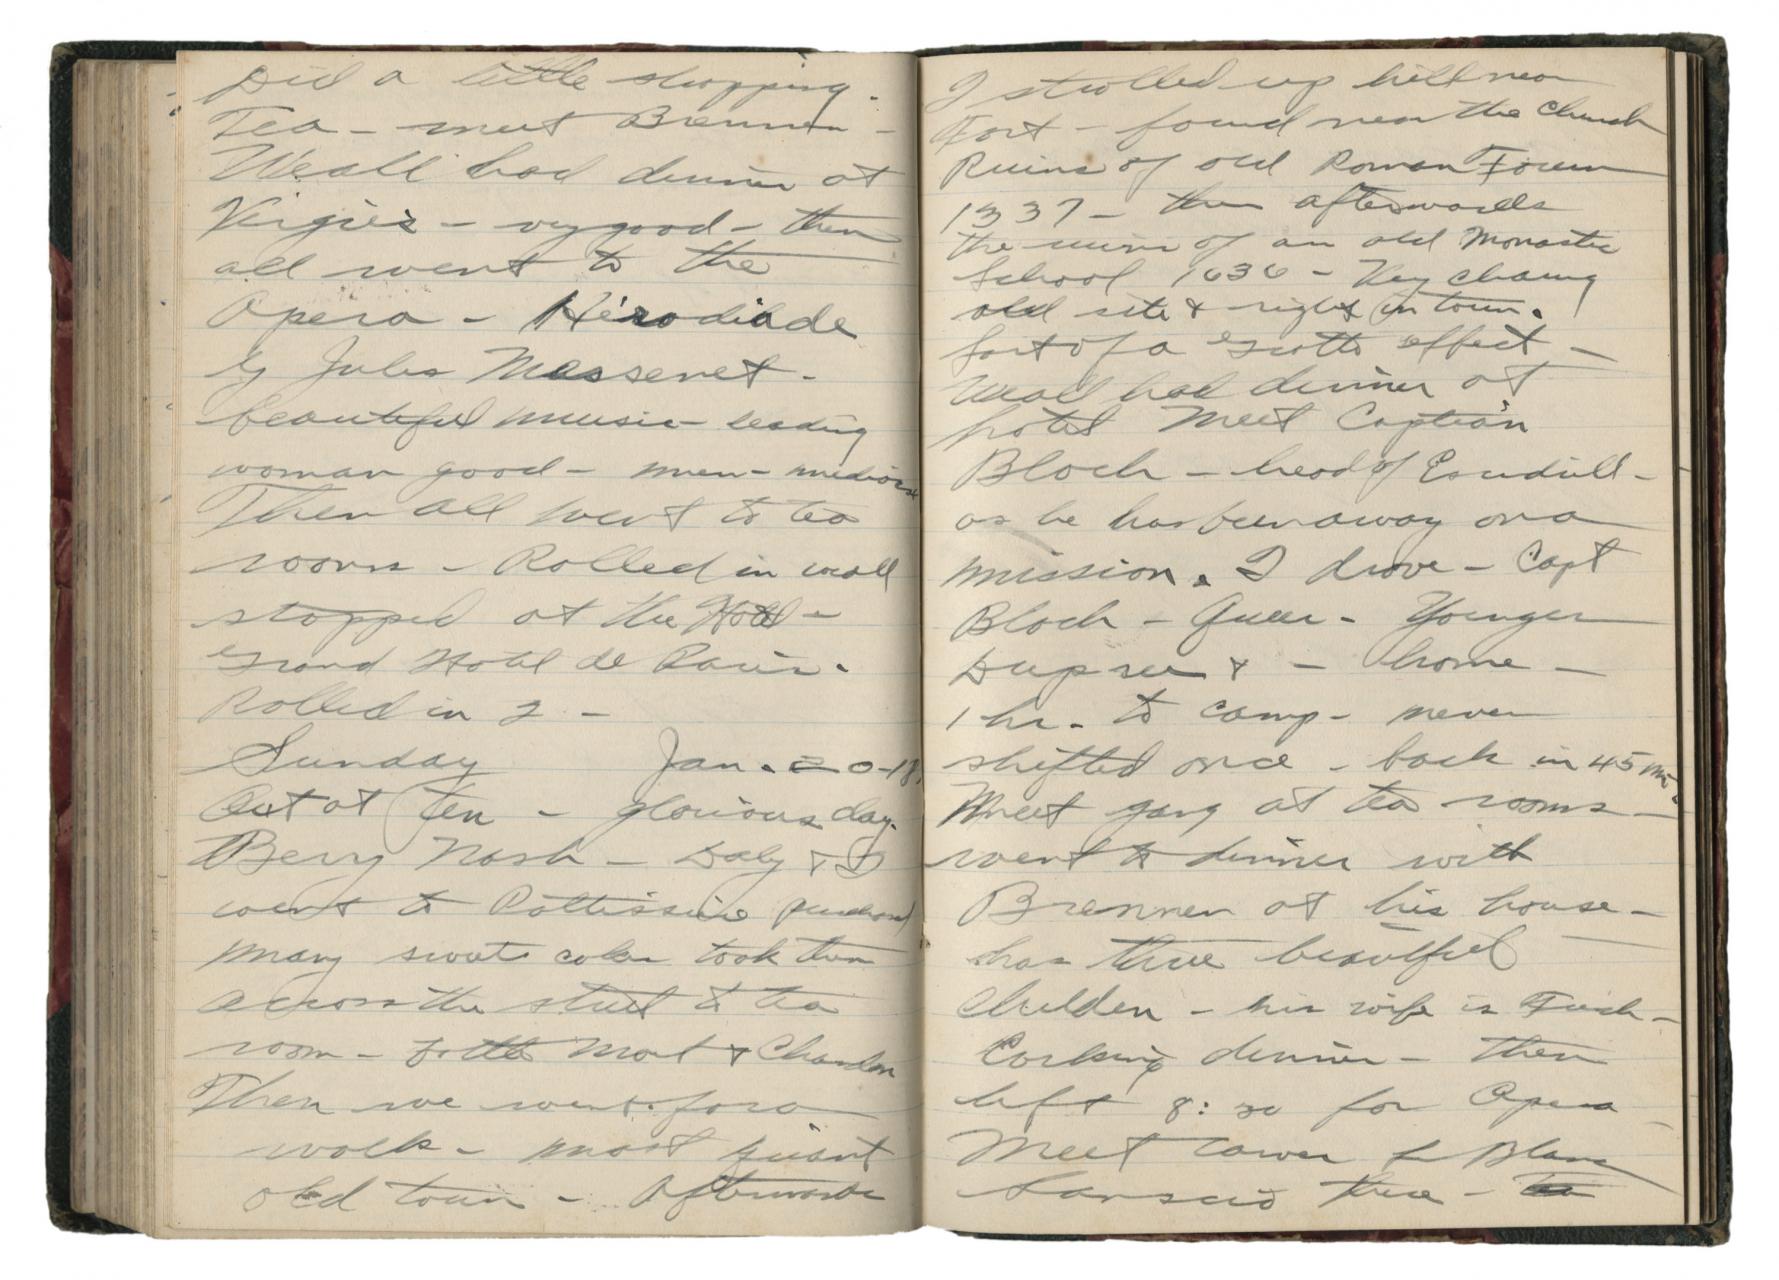 Did a little shopping.
Tea - meet Brennen -
We all had dinner at
Virgie's - very good - then
all went to the
Opera - Hérodiade
by Jules Massenet -
beautiful music - leading
woman good - men - mediocre
Then all went to tea
rooms - Rolled in we all
stopped at the Hotel -
Grand Hotel de Paris.
Rolled in 2 -
Sunday Jan. 20-18,
Out at Ten - glorious day.
Berry Nash - Daly & I
went to Pattisserie purchased
many sweet cakes took them
across the street to tea
room - bottle Moet & Chandon
Then we went for a
walk - most quaint
old town - Afterwards
I strolled up hill near
Fort - found near the Church
Ruins of old Roman Forum
1337 - then afterwards
the ruins of an old Monastic
School 1636 - Very charming
old site & right in town.
Sort of a Grotto effect -
We all had dinner at
hotel Meet Captain
Bloch - head of -
as he has been away on a
mission. I drove - Capt
Bloch - Queer - Younger
& - home -
1 hr. to camp - never
shifted once - back in 45 min.
Meet gang at tea rooms -
went to dinner with
Brennen at his house -
has three beautiful
Children - his wife is Fresh -
Corking dinner - then
left 8:30 for Opera
Meet Tower & Blanc
there -